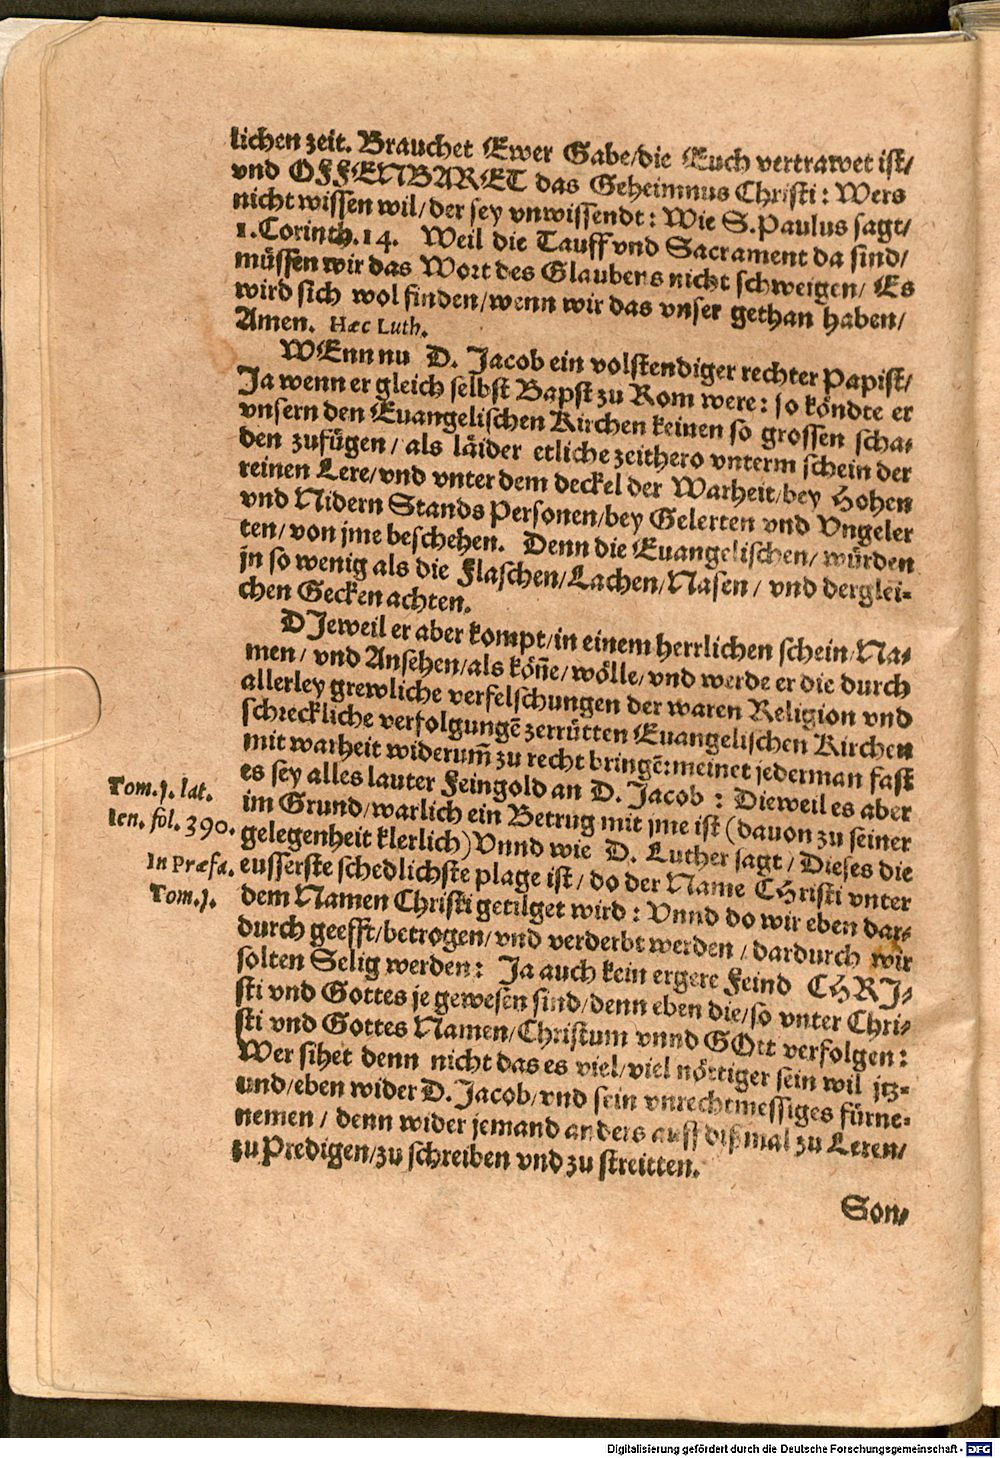 lichen zeit. Brauchet Ewer Gabe/die Euch vertrawet ist/
vnd OFFENBARET das Geheimnus Christi: Wers
nicht wissen wil/der sey vnwissendt: Wie S. Paulus sagt/
1. Corinth. 14. Weil die Tauff vnd Sacrament da sind/
müssen wir das Wort des Glaubens nicht schweigen/ Es
wird sich wol finden/wenn wir das vnser gethan haben/
Amen. Hæc Luth.
WEnn nu D. Jacob ein volstendiger rechter Papist/
Ja wenn er gleich selbst Bapst zu Rom were: so köndte er
vnsern den Euangelischen Kirchen keinen so grossen scha-
den zufügen/ als läider etliche zeithero vnterm schein der
reinen Lere/vnd vnter dem deckel der Warheit/bey Hohen
vnd Nidern Stands Personen/bey Gelerten vnd Vngeler
ten/von jme beschehen. Denn die Euangelischen/ würden
jn so wenig als die Flaschen/Lachen/Nasen/ vnd derglei-
chen Gecken achten.
DJeweil er aber kompt/in einem herrlichen schein/Na-
men/ vnd Ansehen/als köñe/wölle/vnd werde er die durch
allerley grewliche verfelschungen der waren Religion vnd
schreckliche verfolgungẽ zerrütten Euangelischen Kirchen
mit warheit widerum̃ zu recht bringẽ: meinet jederman fast
es sey alles lauter Feingold an D. Jacob: Dieweil es aber
Tom. j. lat.
im Grund/warlich ein Betrug mit jme ist (dauon zu seiner
Ien. fol. 390.
gelegenheit klerlich) Vnnd wie D. Luther sagt/ Dieses die
In Præfa.
eusserste schedlichste plage ist/ do der Name CHristi vnter
Tom. j.
dem Namen Christi getilget wird: Vnnd do wir eben dar-
durch geefft/betrogen/vnd verderbt werden/ dardurch wir
solten Selig werden: Ja auch kein ergere Feind CHRJ-
sti vnd Gottes je gewesen sind/denn eben die/so vnter Chri-
sti vnd Gottes Namen/Christum vnnd GOtt verfolgen:
Wer sihet denn nicht das es viel/viel nöttiger sein wil jtz-
und/eben wider D. Jacob/vnd sein vnrechtmessiges fürne-
nemen/ denn wider jemand anders auff dißmal zu Leren/
zu Predigen/zu schreiben vnd zu streitten.
Son-
Digitalisierung gefördert durch die Deutsche Forschungsgemeinschaft - DFG